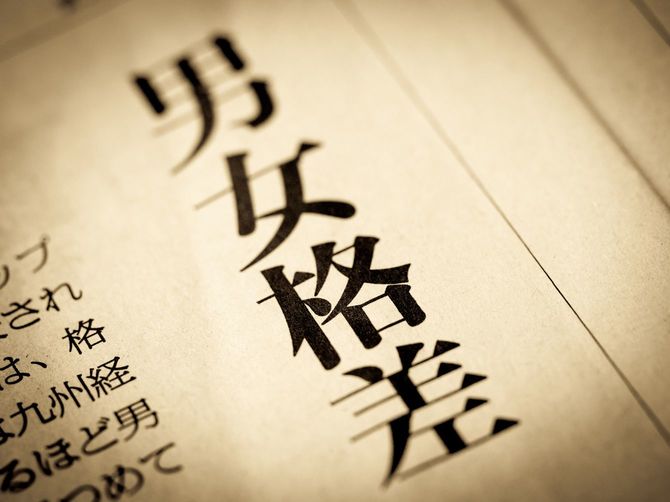 男女格差
ップ
され
は、格
九州経
るほど男
つめて